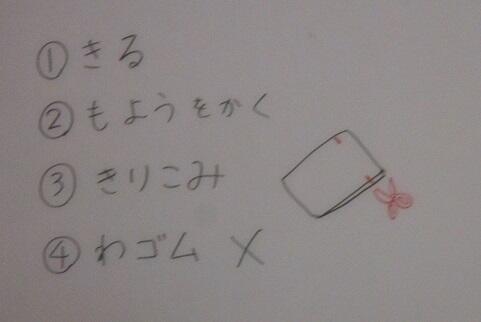 ①きる
②もようをかく
③きりこみ
④わゴム ×